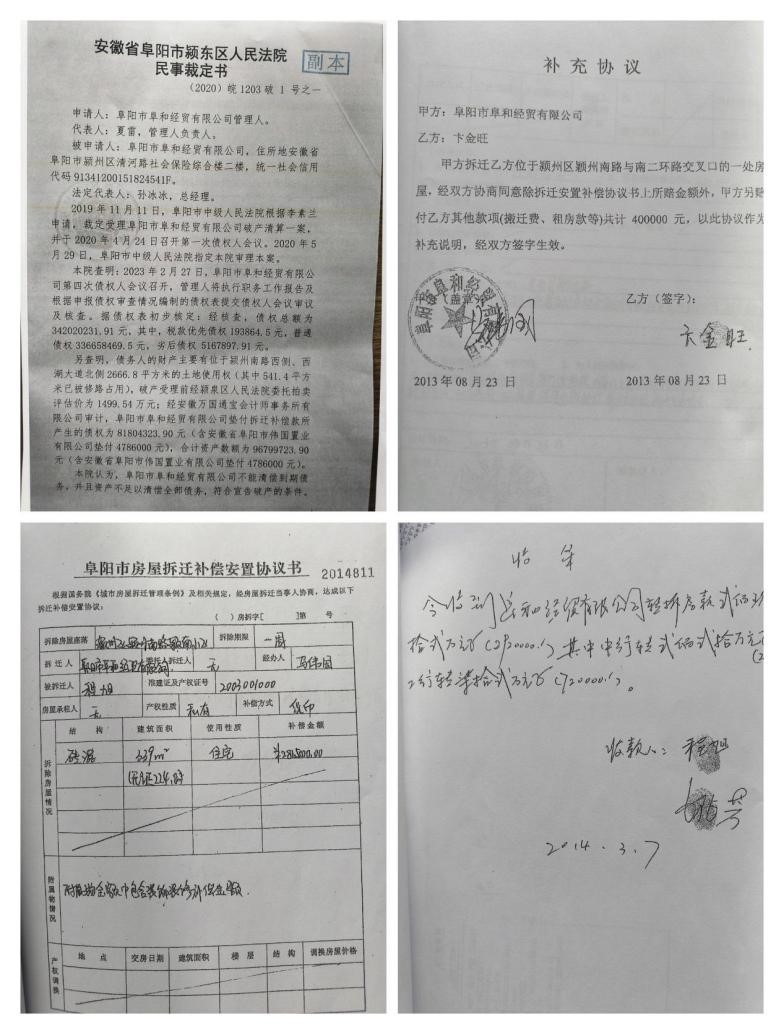 安徽省阜阳市颍东区人民法院
民事裁定书
副本
（2020）皖 1203 破 1 号之一
申请人：阜阳市阜和经贸有限公司管理人。
代表人：夏雷，管理人负责人。
被申请人：阜阳市阜和经贸有限公司，住所地安徽省
阜阳市颍州区清河路社会保险综合楼二楼，统一社会信用
代码 91341200151824541F。
法定代表人：孙冰冰，总经理。
2019 年 11 月 11 日，阜阳市中级人民法院根据李素兰
申请，裁定受理阜阳市阜和经贸有限公司破产清算一案，
并于 2020 年 4 月 24 日召开第一次债权人会议。2020 年 5
月 29 日，阜阳市中级人民法院指定本院审理本案。
本院查明：2023 年 2 月 27 日，阜阳市阜和经贸有限公
司第四次债权人会议召开，管理人将执行职务工作报告及
根据申报债权审查情况编制的债权表提交债权人会议审议
及核查。据债权表初步核定：经核查，债权总额为
342020231.91 元，其中，税款优先债权 193864.5 元，普通
债权 336658469.5 元，劣后债权 5167897.91 元。
另查明，债务人的财产主要有位于颍州南路西侧、西
湖大道北侧 2666.8 平方米的土地使用权（其中 541.4 平方
米已被修路占用），破产受理前经颍泉区人民法院委托拍卖
评估价为 1499.54 万元；经安徽万国通宝会计师事务所有
限公司审计，阜阳市阜和经贸有限公司垫付拆迁补偿款所
产生的债权为 81804323.90 元（含安徽省阜阳市伟国置业
有限公司垫付 4786000 元），合计资产数额为 96799723.90
元（含安徽省阜阳市伟国置业有限公司垫付 4786000 元）。
本院认为，阜阳市阜和经贸有限公司不能清偿到期债
务，并且资产不足以清偿全部债务，符合宣告破产的条件。
补充协议
甲方：阜阳市阜和经贸有限公司
乙方：卞金旺
甲方拆迁乙方位于颍州区颍州南路与南二环路交叉口的一处房
屋，经双方协商同意除拆迁安置补偿协议书上所赔金额外，甲方另赔
付乙方其他款项(搬迁费、租房款等)共计 400000 元，以此协议作为
补充说明，经双方签字生效。
（盖章）
乙方（签字）：
卞金旺
2013 年 08 月 23 日
2013 年 08 月 23 日
阜阳市房屋拆迁补偿安置协议书
2014811
根据国务院《城市房屋拆迁管理条例》及相关规定，经房屋拆迁当事人协商，达成以下
拆迁补偿安置协议：
（ ）房拆字[ ]第 号
拆除房屋座落 拆除期限 一周
拆迁人 委托人拆迁人 无 经办人 马伟国
被拆迁人 程旭 准建证及产权证号 200301000
房屋承租人 无 产权性质 私有 补偿方式 货币
拆除房屋情况
结构 建筑面积 使用性质 补偿金额
砖混 339m² 住宅
附属物情况
产权调换
地点 交房日期 建筑面积 楼层 结构 调换房屋价格
收条
今收到阜和经贸有限公司转拆房款弍佰玖
拾弍万元 (2920000.) 其中中行转弍佰弍拾万元
工行转柒拾弍万元 (720000.)。
收款人：程旭
2014.3.7